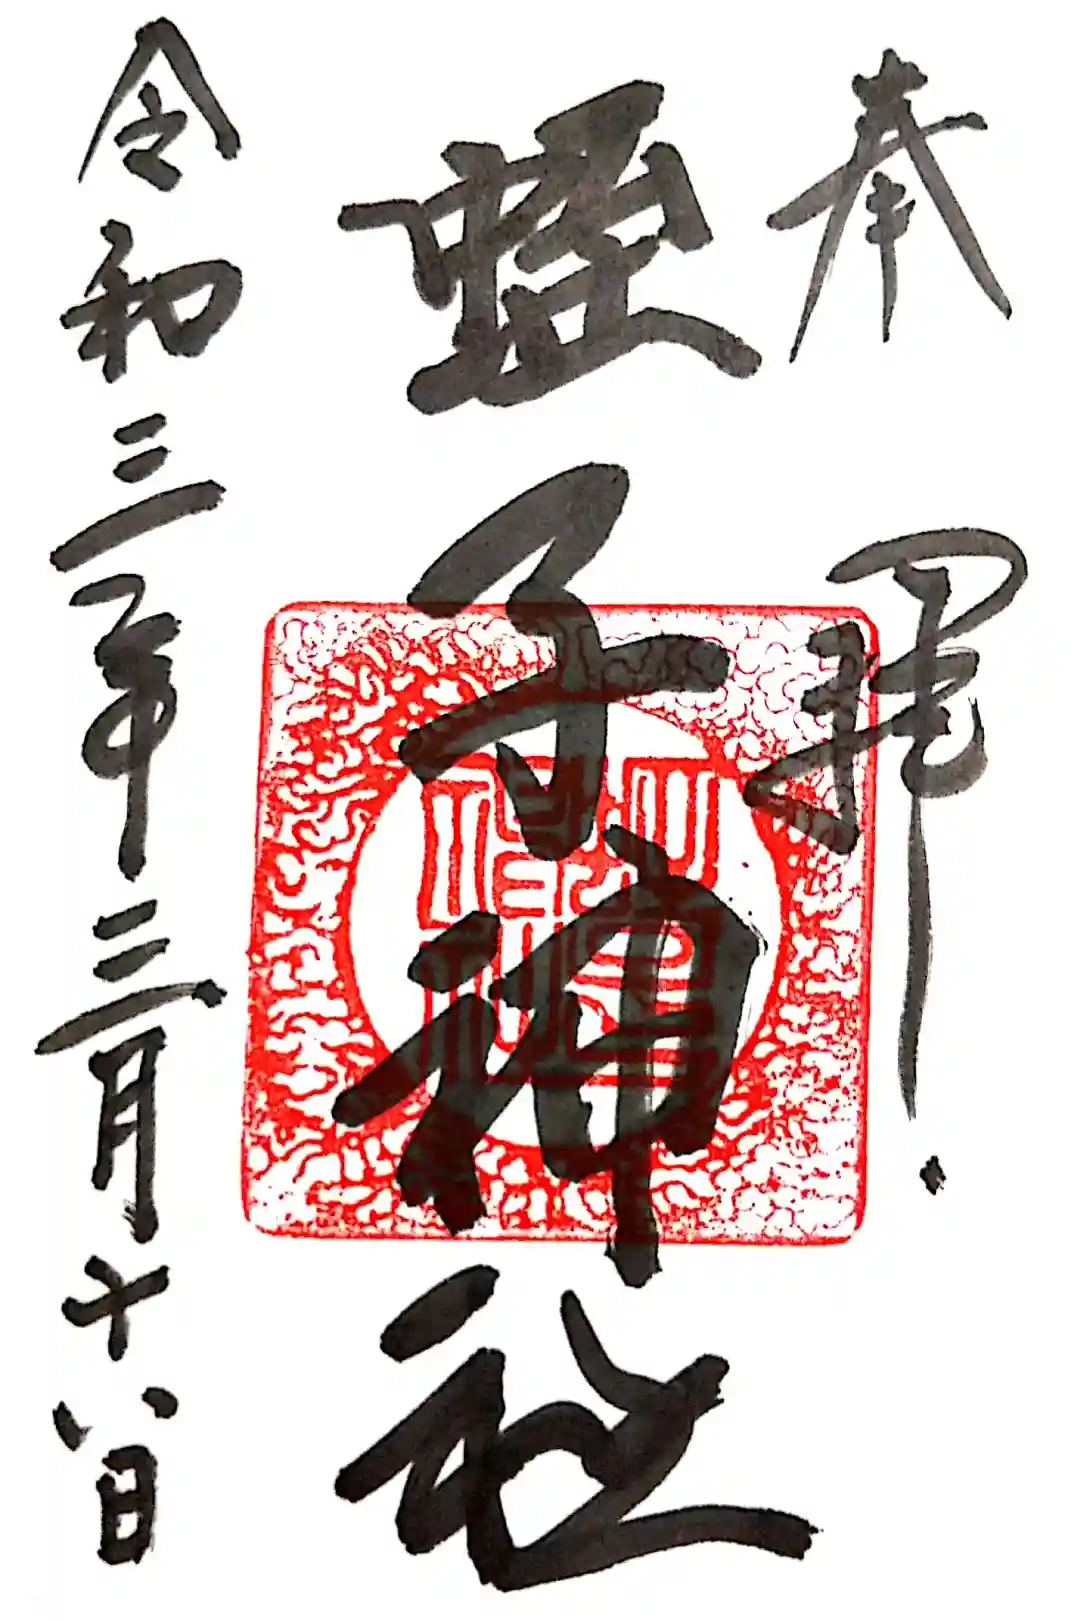 奉拝
蛭子神社
令和三年三月十八日